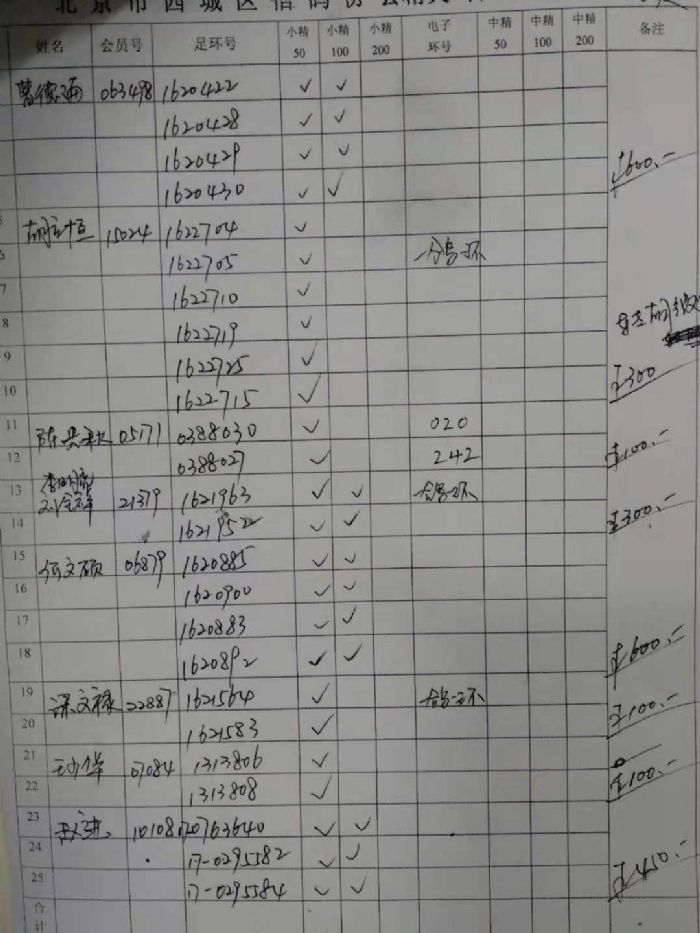 北京市西城区信鸽协会精
姓名 会员号 足环号 小精50 小精100 小精200 电子环号 中精50 中精100 中精200 备注
曹德 063498 1620422 ✓ ✓
1620428 ✓ ✓
1620429 ✓ ✓
1620430 ✓ ✓ ¥600.-
15024 1622704 ✓
1622705 ✓
7 1622710 ✓
8 1622719 ✓
9 1622725 ✓
10 1622715 ✓ ¥300
11 05171 0388030 ✓ 020
12 0388027 ✓ 242 ¥100.-
13 21379 1621963 ✓ ✓
14 1621952 ✓ ✓ ¥300.-
15 何文硕 06879 1620885 ✓ ✓
16 1620900 ✓ ✓
17 1620883 ✓ ✓
18 1620892 ✓ ✓ ¥600.-
19 梁文禄 22887 1621564 ✓
20 1621583 ✓ ¥100.-
21 07084 1313806 ✓
22 1313808 ✓ ¥100.-
23 ✓ ✓
24 17-0295582 ✓ ✓
25 17-0295584 ✓ ✓ ¥450.-
合计